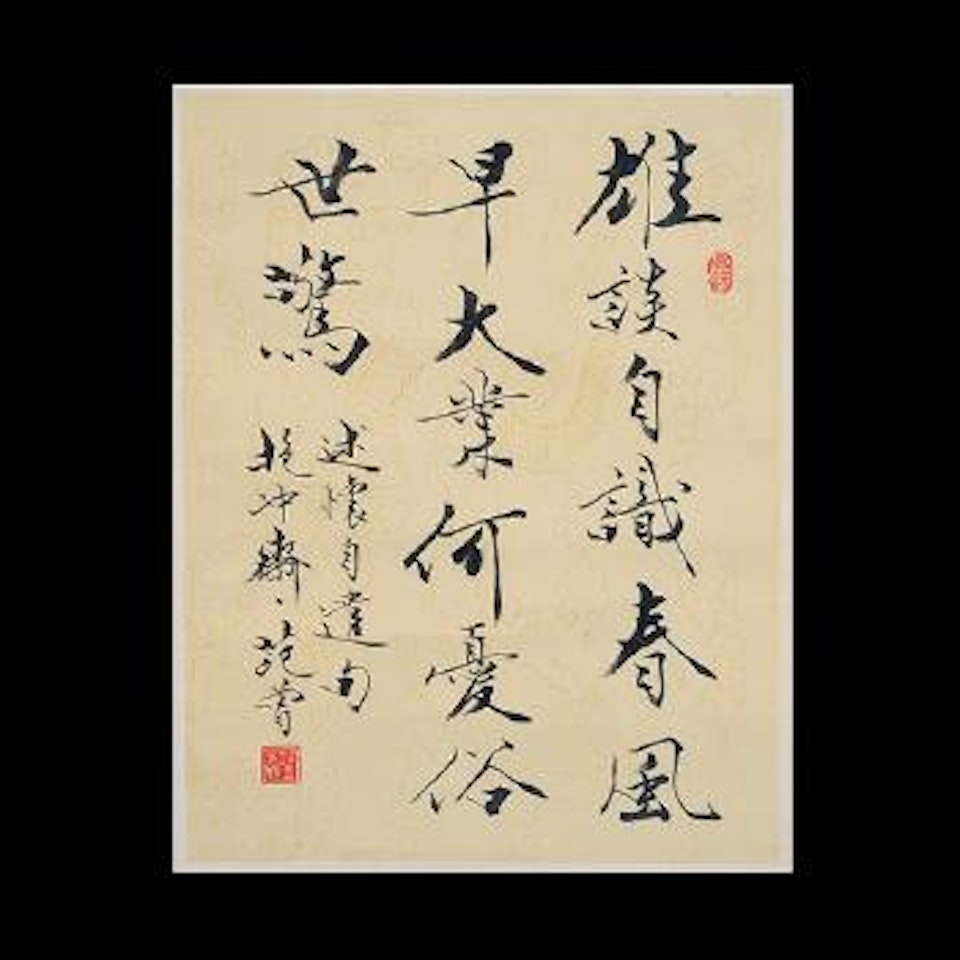 雄談自識春風
早大業何憂俗
世驚
述懷自遣句
抱冲齋、范曾